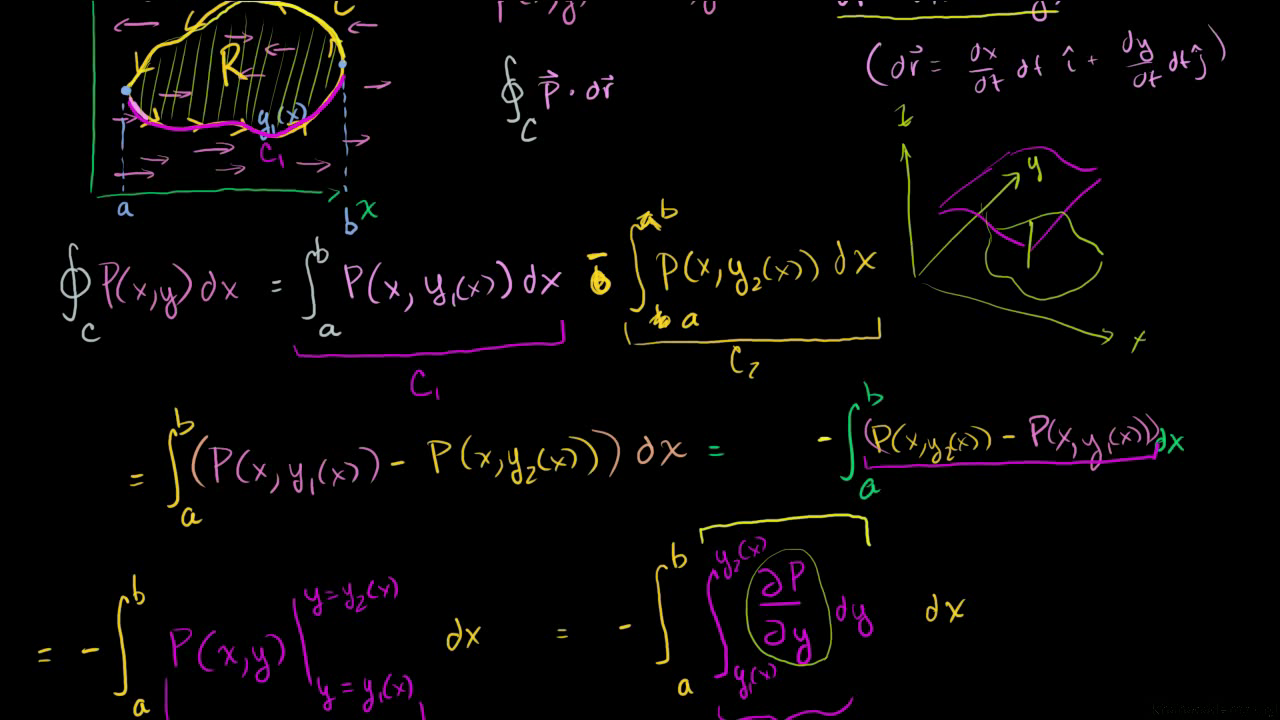 R
y₁(x)
C₁
a
b
x
∮_C P⃗ · dr⃗
(dr⃗ = dx/dt dt î + dy/dt dt ĵ)
z
y
x
∮_C P(x,y) dx = ∫_a^b P(x, y₁(x)) dx - ∫_a^b P(x, y₂(x)) dx
C₁
C₂
= ∫_a^b (P(x, y₁(x)) - P(x, y₂(x))) dx = - ∫_a^b (P(x, y₂(x)) - P(x, y₁(x))) dx
= - ∫_a^b P(x,y) |_{y = y₁(x)}^{y = y₂(x)} dx = - ∫_a^b ∫_{y₁(x)}^{y₂(x)} ∂P/∂y dy dx